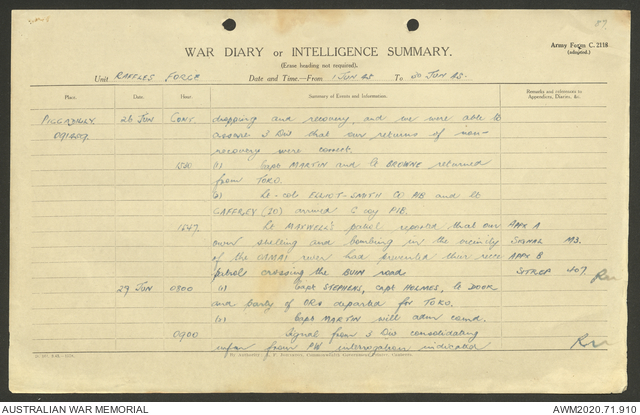 87
Army Form C. 2118
(adapted.)
WAR DIARY or INTELLIGENCE SUMMARY.
(Erase heading not required).
Unit RAFFLES FORCE Date and Time—From 1 JUN 45 To 30 JUN 45.
Place. Date. Hour Summary of Events and Information. Remarks and references to Appendices, Diaries, &c.
PICCADILLY 26 JUN CONT dropping and recovery, and we were able to
assure 3 Div that our returns of non-
recovery were correct.
1530 (1) Capt MARTIN and Lt BROWNE returned
from TOKO.
(2) Lt-col ELLIOT-SMITH CO PIB and Lt
(IO) arrived C coy PIB.
1647 Lt MAXWELL'S patrol reported that our APPX A
own shelling and bombing in the vicinity SIGNAL
of the river had prevented their APPX B
patrols crossing the BUIN road SITREP
29 JUN 0800 (1) Capt STEPHENS, Capt HOLMES, Lt
and party of ORs departed for TOKO.
(2) Capt MARTIN will adm comd.
0900 Signal from 3 Div consolidating
infm from PW interrogations indicated
AUSTRALIAN WAR MEMORIAL
AWM2020.71.910